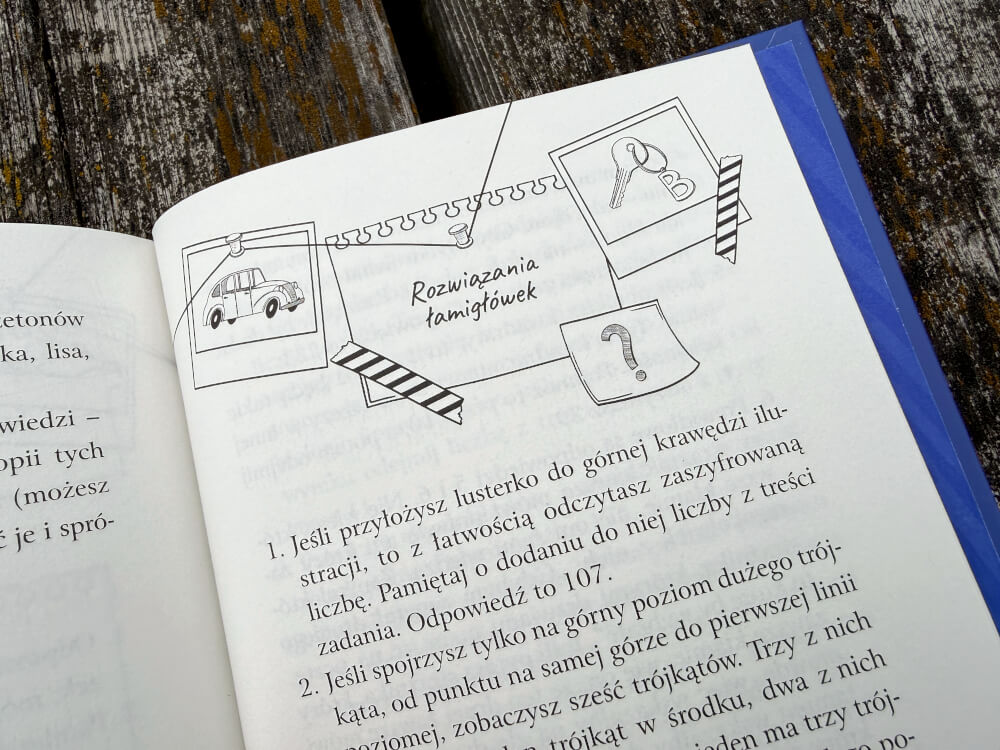 zetonów
ka, lisa,
wiedzi –
opii tych
(możesz
ć je i spró-
B
Rozwiązania
łamigłówek
?
1. Jeśli przyłożysz lusterko do górnej krawędzi ilu-
stracji, to z łatwością odczytasz zaszyfrowaną
liczbę. Pamiętaj o dodaniu do niej liczby z treści
zadania. Odpowiedź to 107.
2. Jeśli spojrzysz tylko na górny poziom dużego trój-
kąta, od punktu na samej górze do pierwszej linii
poziomej, zobaczysz sześć trójkątów. Trzy z nich
trójkąt w środku, dwa z nich
jeden ma trzy trój-
po-